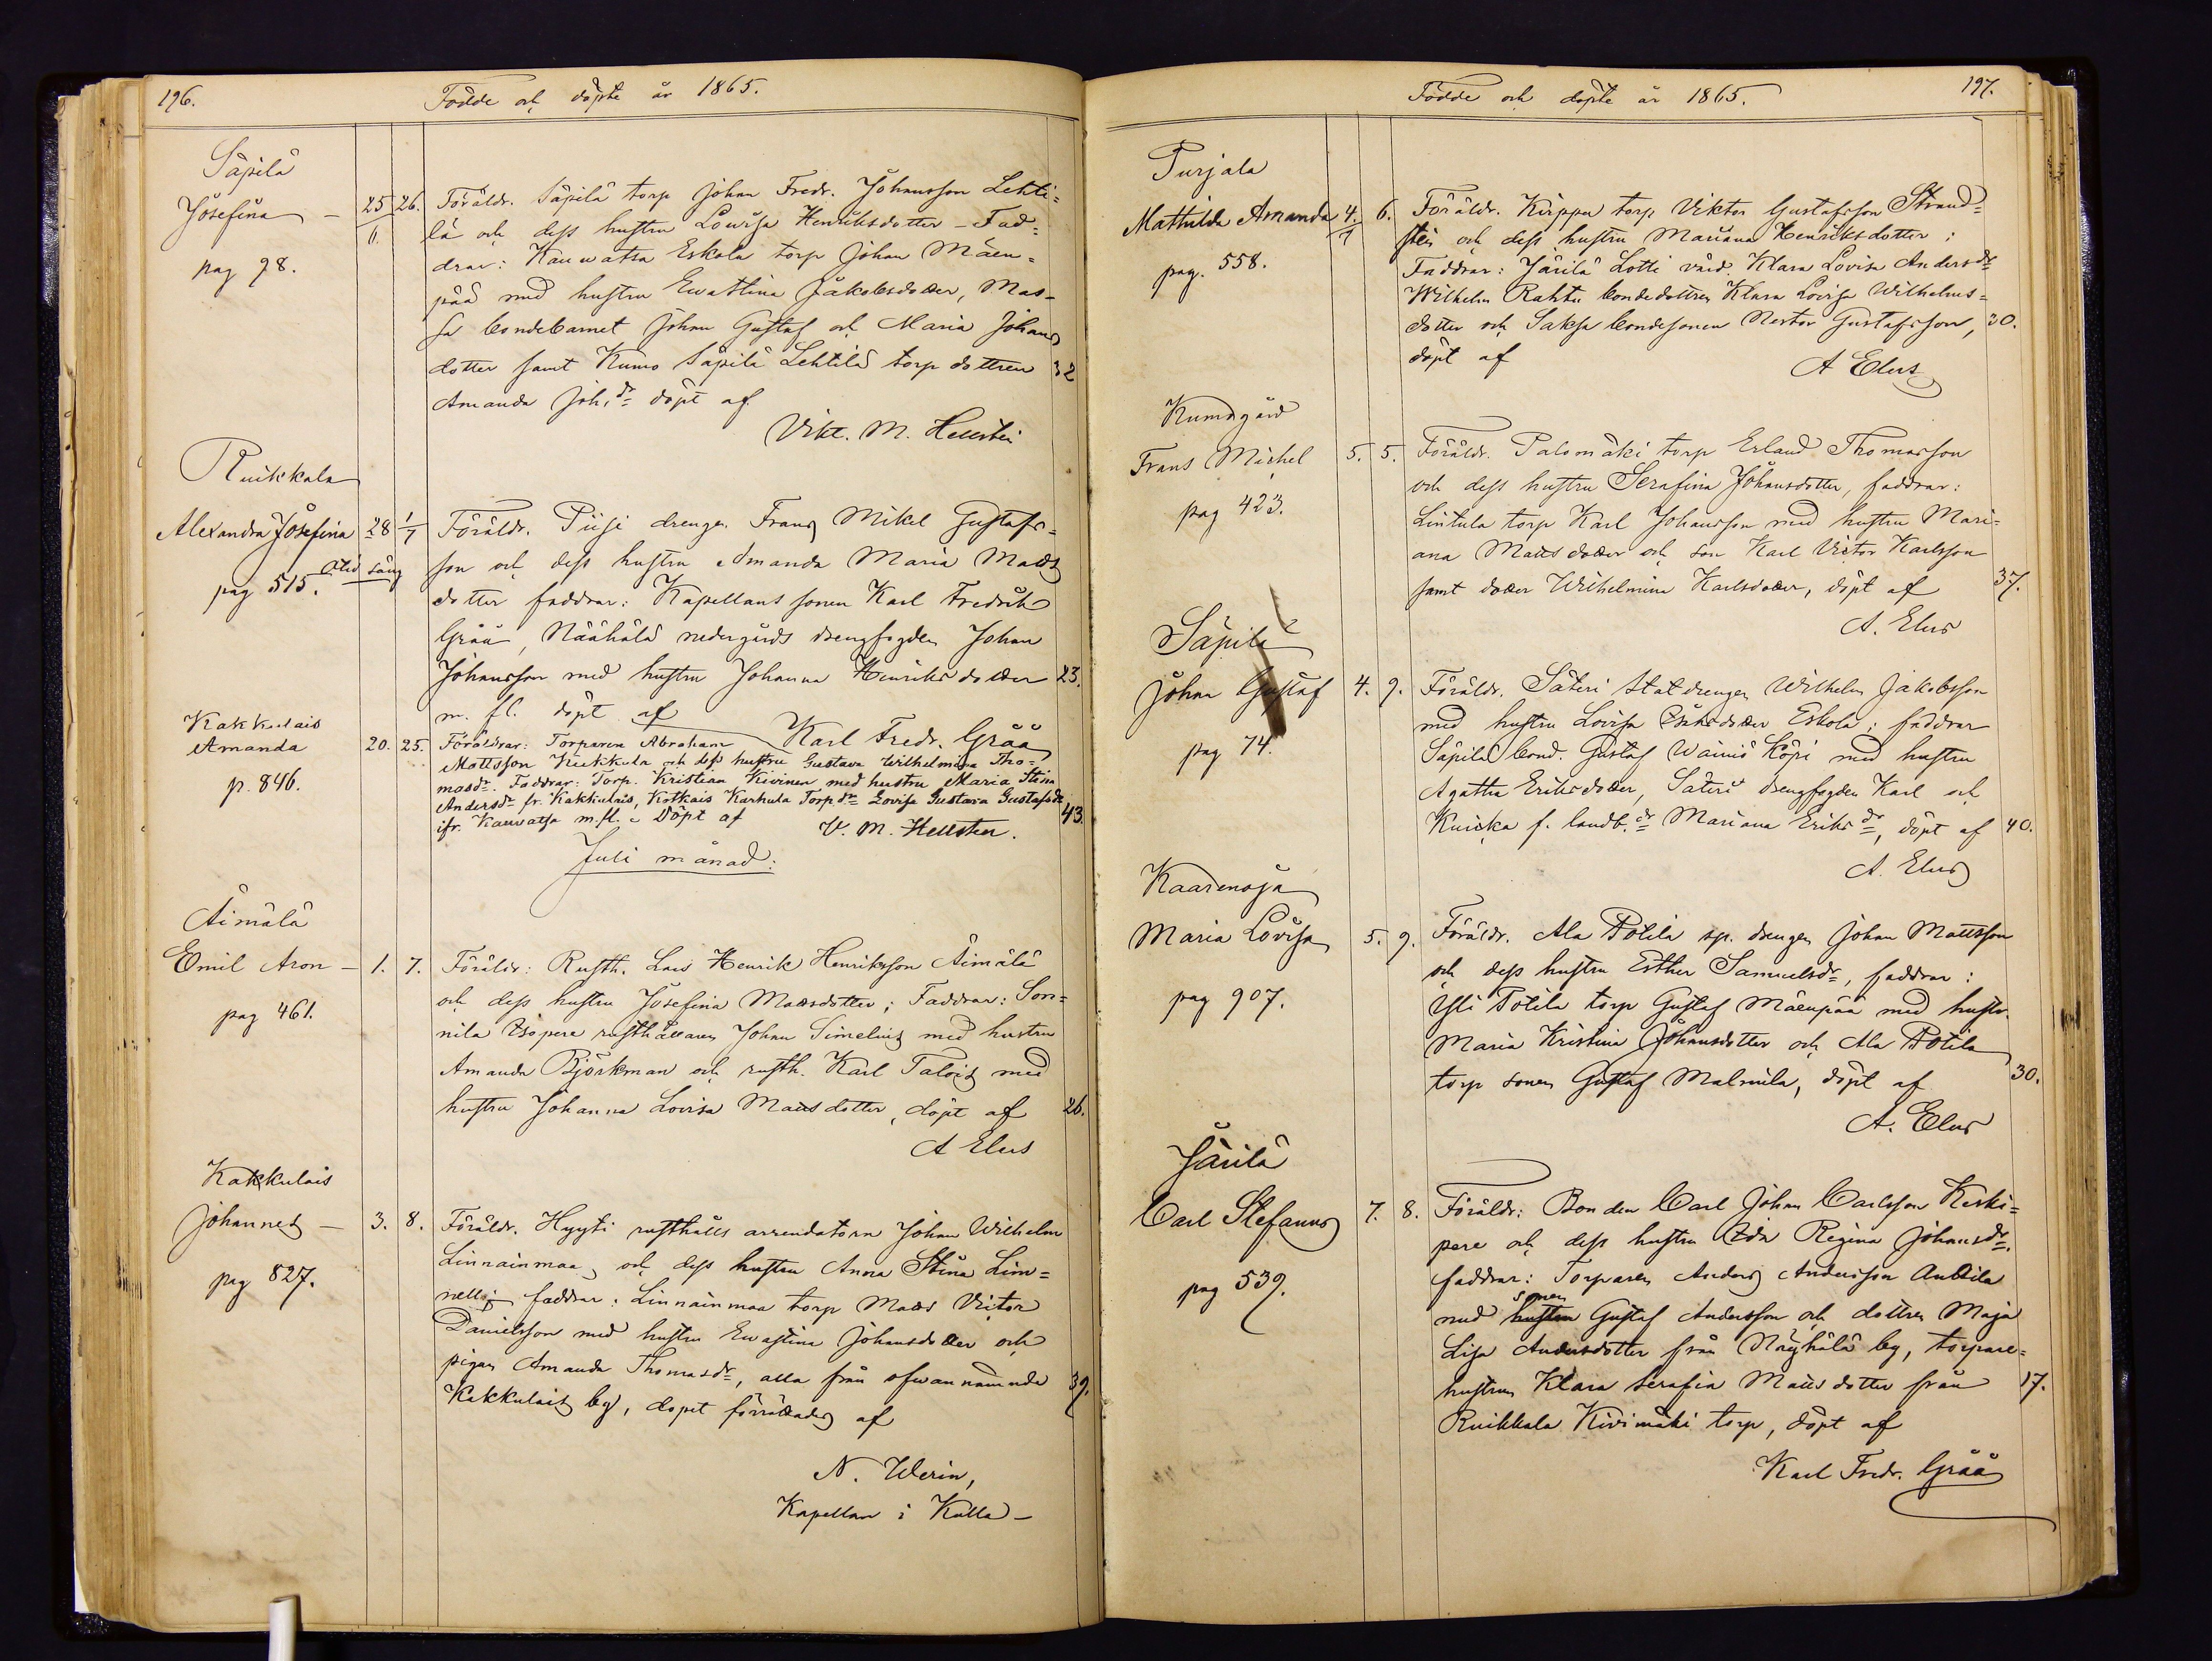 196.
Födde och döpte år 1865.
Säpilä
Josefina — 25/6. 26.
pag 98.
Föräldr. Säpilä torp Johan Fredr. Johansson Lehti=
lä och dess hustru Lovisa Henriksdotter – Fad=
drar: Kauwatsa Eskola torp Johan Mäen=
pää med hustru Ewastina Jakobsdotter, Mas-
sa bondebarnet Johan Gustaf och Maria Johans
dotter samt Kumo Säpilä Lehtilä torp dottren 32
Amanda Joh.dr döpt af
Vikt. M. Hellstén
Ruikkala
Alexandra Josefina 28 1/7
pag 515.
Föräldr. Piisi drengen Frans Mikel Gustafs=
son och dess hustru Amanda Maria Matts
dotter faddrar: Kapellans sonen Karl Fredrik
Gråå, Näähälä nedergårds drengfogden Johan
Johansson med hustru Johanna Henriksdotter 23.
m. fl. döpt af
Karl Fredr. Gråå
Kakkulais
Amanda 20. 25.
p. 846.
Föräldrar: Torparen Abraham
Mattsson Kukkula och dess hustru Gustava Wilhelmina Tho=
masdr. Faddrar: Torp. Kristian Kivinen med hustru Maria Stina
Andersdr fr. Kakkulais, Kotkais Karhula Torp.dr Lovisa Gustava Gustafsdr
ifr. Kauvatsa m.fl. Döpt af 43.
V. M. Hellstén.
Juli månad:
Äimälä
Emil Aron — 1. 7.
pag 461.
Föräldr: Rusth. Lars Henrik Henriksson Äimälä
och dess hustru Josefina Mattsdotter; Faddrar: Son=
nila Isopere rusthållaren Johan Simelius med hustru
Amanda Björkman och rusth. Karl Talois med
hustru Johanna Lovisa Mattsdotter, döpt af 26.
A Elers
Kakkulais
Johannes — 3. 8.
pag 827.
Föräldr. Hyyti rusthålls arrendatorn Johan Wilhelm
Linnainmaa, och dess hustru Anna Stina Lin=
nell; faddrar: Linnainmaa torp Matts Victor
Danielsson med hustru Ewastina Johansdotter och
pigan Amanda Thomasdr, alla från ofwannämnda 39.
Kakkulais by, dopet förrättades af
N. Werin,
Kapellan i Kulla –
Födde och döpte år 1865.
197.
Purjala
Mathilda Amanda 4./7 6.
pag. 558.
Föräldr. Kirppu torp. Viktor Gustafsson Strand=
stén och dess hustru Mariana Henriksdotter;
Faddrar: Järilä Lotti värd. Klara Lovisa Andersdr
Wilhelm Rahtu bondedottren Klara Lovisa Wilhelms=
dotter och Saksa bondesonen Nestor Gustafsson, 30.
döpt af
A Elers
Kumogård
Frans Michel 5. 5.
pag 423.
Föräldr. Palomäki torp Erland Thomasson
och dess hustru Serafina Johansdotter, faddrar:
Lintula torp Karl Johansson med hustru Mari=
ana Mattsdotter och son Karl Victor Karlsson
samt dotter Wilhelmina Karlsdotter, döpt af 37.
A. Elers
Säpilä
Johan Gustaf 4. 9.
pag 74.
Föräldr. Säteri statdrengen Wilhelm Jakobsson
med hustru Lovisa Eriksdotter Eskola; faddrar
Säpilä bond. Gustaf Wäinö Köpi med hustru
Agatha Eriksdotter, Säteri drengfogden Karl och
Kuiska f. landb.dr Mariana Eriksdr, döpt af 40.
A. Elers
Kaarenoja
Maria Lovisa 5. 9.
pag 907.
Föräldr. Ala Potila sp. drengen Johan Mattsson
och dess hustru Esther Samuelsdr, faddrar:
Yli Potila torp Gustaf Mäenpää med hustr.
Maria Kristina Johansdotter och Ala Potila
torp sonen Gustaf Malmila, döpt af 30.
A. Elers
Järilä
Carl Stefanus 7. 8.
pag 539.
Föräldr: Bonden Carl Johan Carlsson Keski=
pere och dess hustru Ida Regina Johansdr.
faddrar: Torparen Anders Andersson Anttila
med hustru sonen Gustaf Andersson och dottren Maja
Lisa Andersdotter från Näyhälä by, torpare=
hustrun Klara Serafia Mattsdotter från 17.
Ruikkala Kivimäki torp, döpt af
Karl Fredr. Gråå